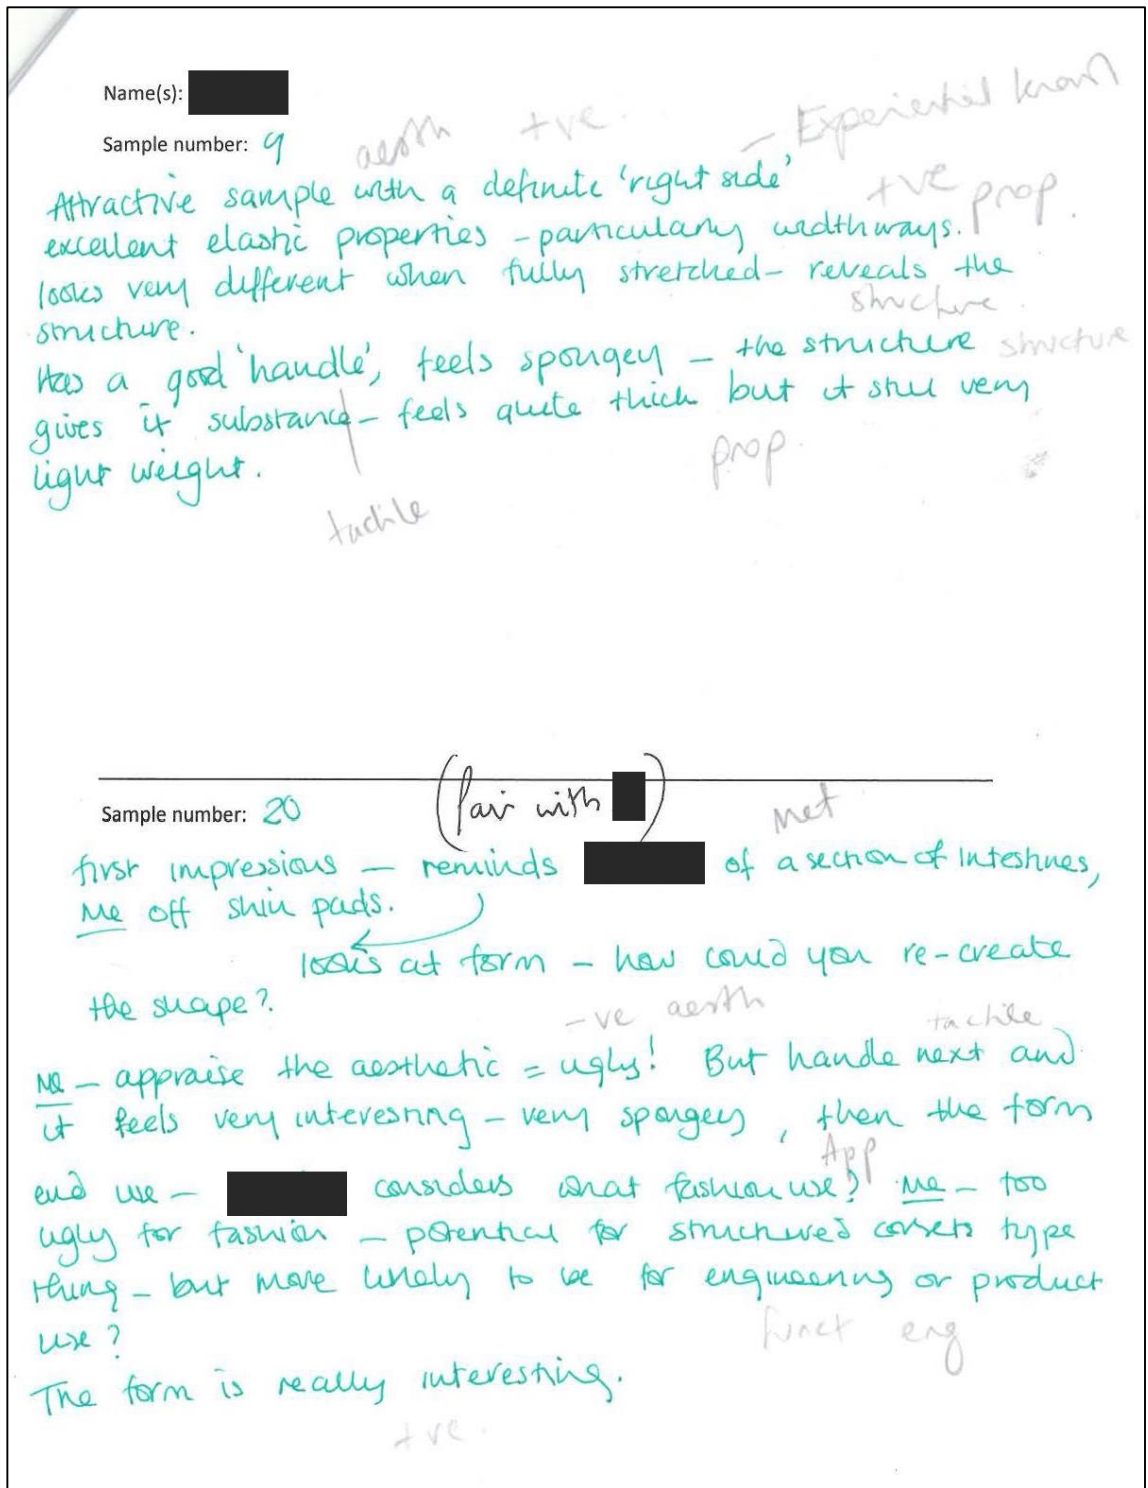 Name(s):
– Experiential know
Sample number: 9 aesth +ve.
Attractive sample with a definite 'right side'
+ve prop.
excellent elastic properties – particularly widthways.
looks very different when fully stretched – reveals the
structure. structure.
Has a good 'handle', feels spongey – the structure structure
gives it substance – feels quite thick but it still very
light weight. prop.
tactile
(Pair with )
Sample number: 20 met
first impressions – reminds of a section of intestines,
Me off shin pads.
looks at form – how could you re-create
the shape?
-ve aesth tactile
Me – appraise the aesthetic = ugly! But handle next and
it feels very interesting – very spongey, then the form
App
end use – considers what fashion use? Me – too
ugly for fashion – potential for structured corsets type
thing – but more likely to be for engineering or product
use? funct eng
The form is really interesting.
+ve.